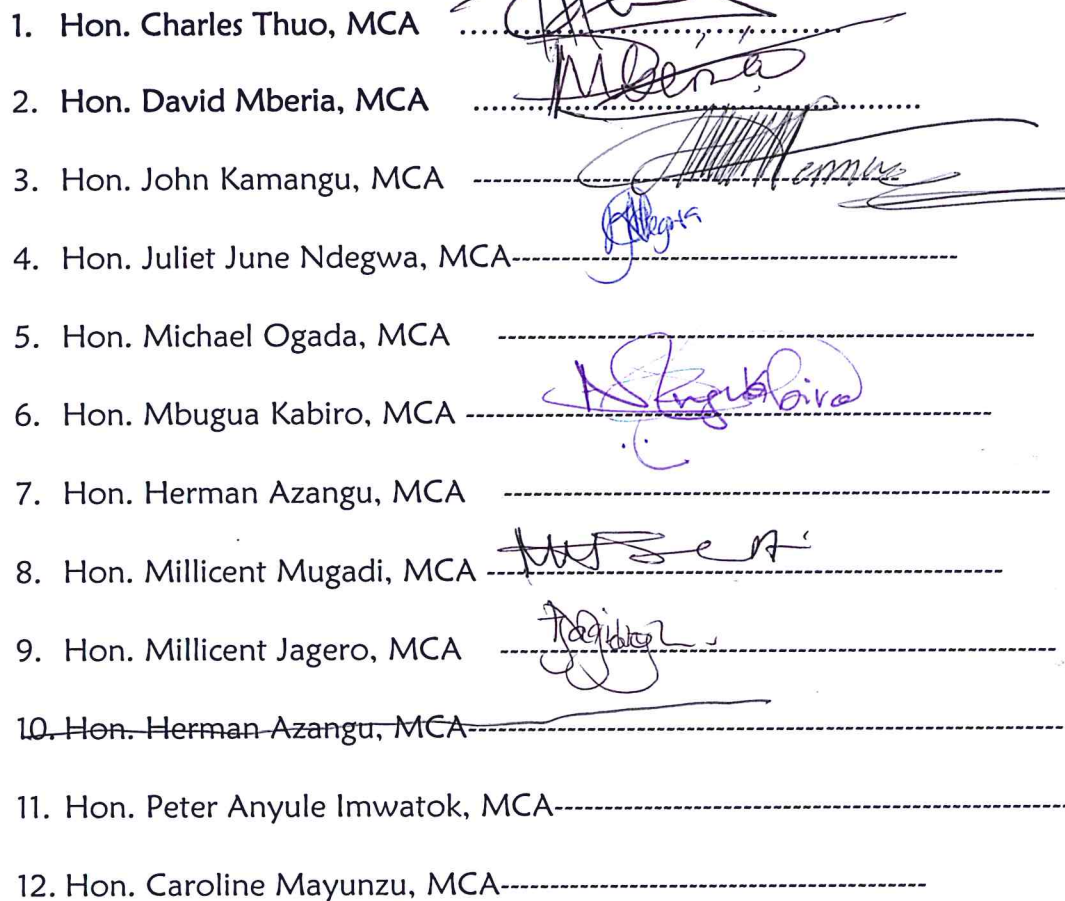 1. Hon. Charles Thuo, MCA ..................
2. Hon. David Mberia, MCA .................. Mberia
3. Hon. John Kamangu, MCA ------------------
4. Hon. Juliet June Ndegwa, MCA------------------ Ndegwa
5. Hon. Michael Ogada, MCA ------------------
6. Hon. Mbugua Kabiro, MCA ------------------
7. Hon. Herman Azangu, MCA ------------------
8. Hon. Millicent Mugadi, MCA ------------------
9. Hon. Millicent Jagero, MCA ------------------
10. Hon. Herman Azangu, MCA------------------
11. Hon. Peter Anyule Imwatok, MCA------------------
12. Hon. Caroline Mayunzu, MCA------------------